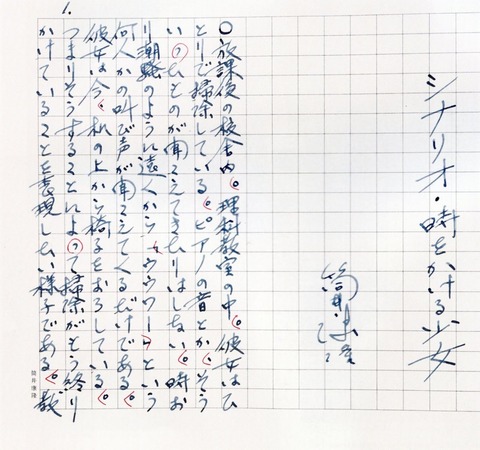 シナリオ・時をかける少女
筒井康隆
〇放課後の校舎内。理科教室の中。彼女はひ
とりで掃除している。ピアノの音とか、そう
いったものが聞こえてきたりはしない。時お
り潮騒のように遠くから「ウワワー」という
何人かの叫び声が聞こえてくるだけである。
彼女は今、机の上から椅子をおろしている。
つまりそうすることによって掃除がもう終り
かけていることを表現したい様子である。教
1.
筒井康隆